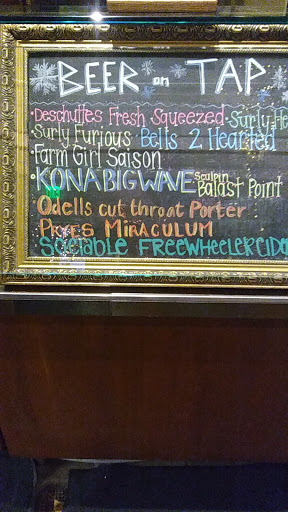 BEER on TAP
Deschuttes Fresh Squeezed · Surly He
Surly Furious · Bells 2 Hearted
· Farm Girl Saison
· KONA BIG WAVE Sculpin Balast Point
Odells cut throat Porter
PRYES MIRACULUM
Sociable FREEWHEELER CIDE